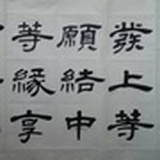 發上等
願結中
等緣享